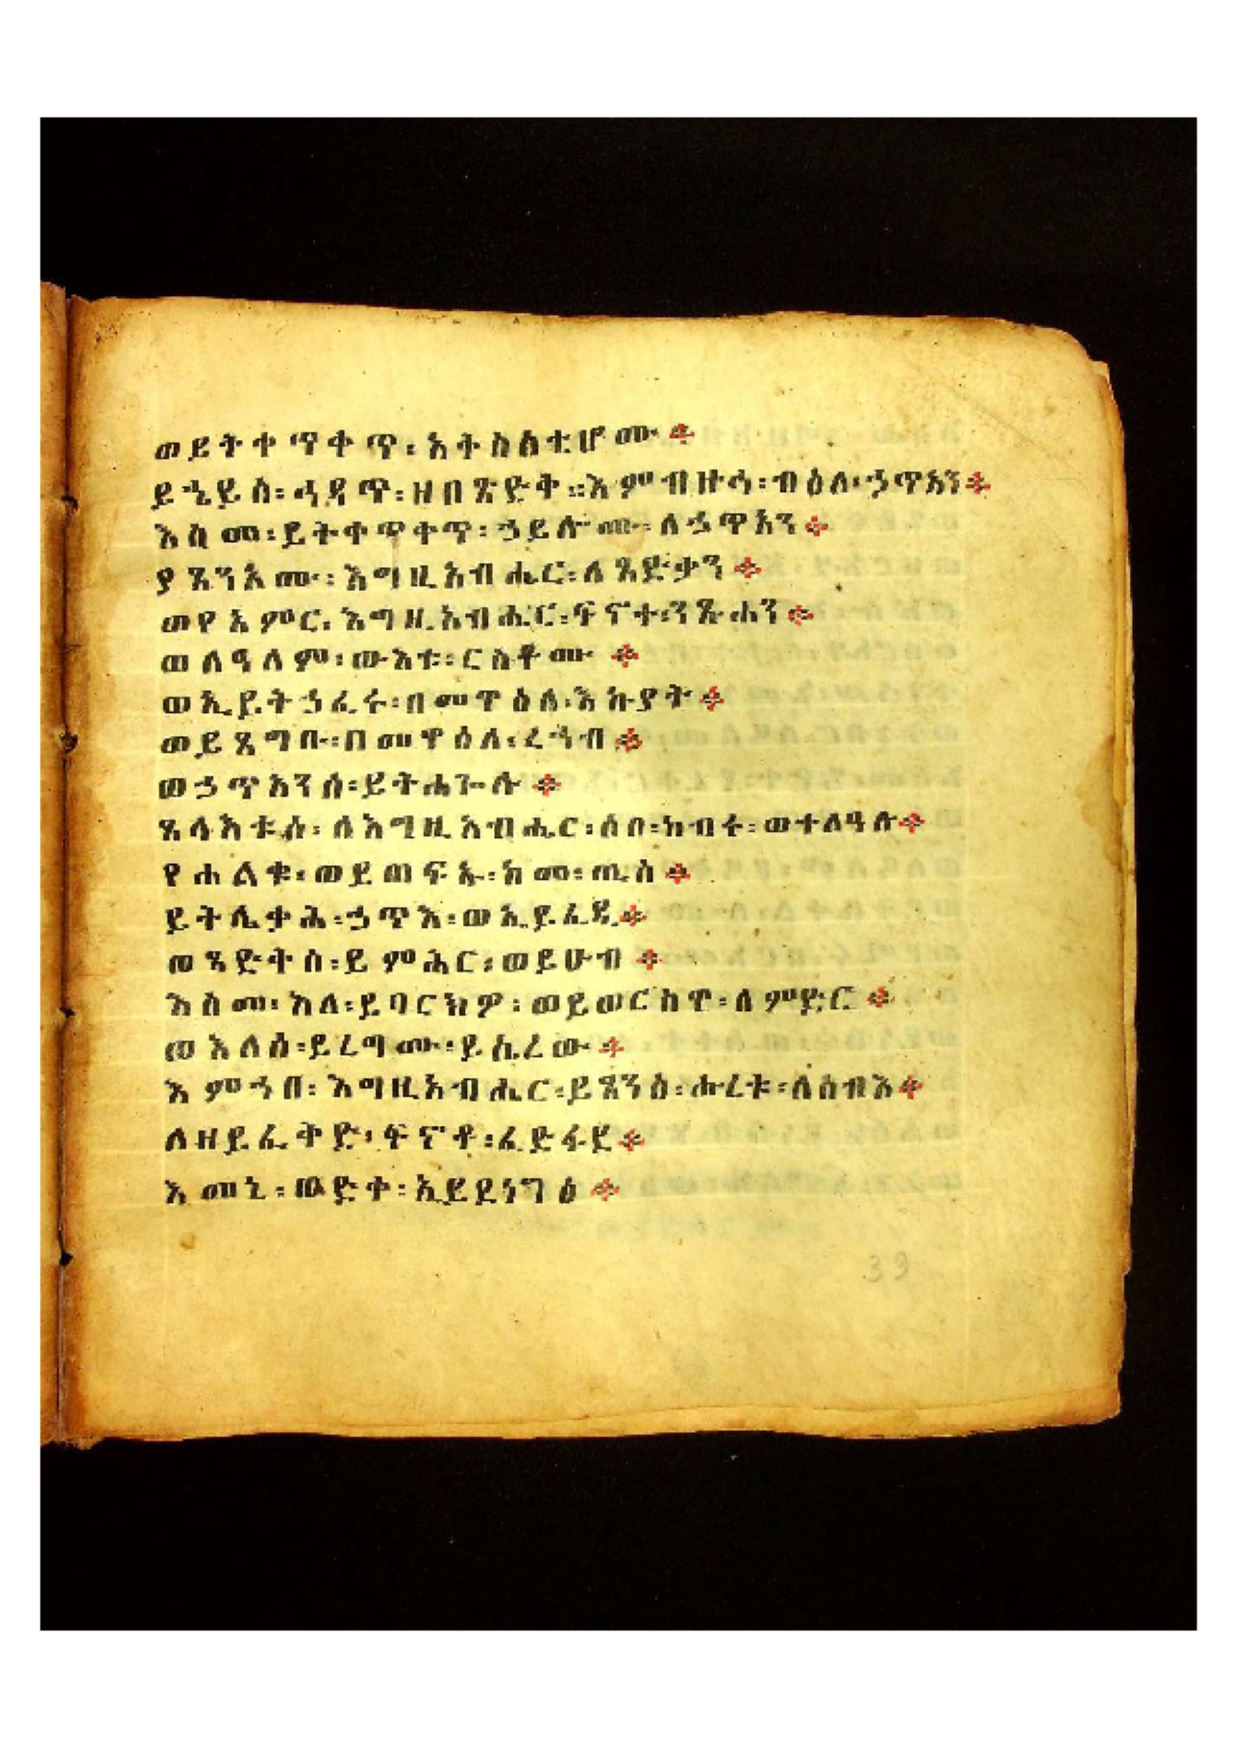 ወይትቀጥቀጥ፡አትስስቲሆሙ፨
ይኄይስ፡ኅዳጥ፡ዘበጽድቅ።እምብዙኅ፡ብዕለ፡ኃጥአን፨
እስመ፡ይትቀጥቀጥ፡ኃይሎሙ፡ለኃጥአን፨
ያጸንኦሙ፡እግዚአብሔር፡ለጻድቃን፨
ወየአምር፡እግዚአብሔር፡ፍኖተ፡ንጹሐን፨
ወለዓለም፡ውእቱ፡ርስቶሙ፨
ወኢይትኃፈሩ፡በመዋዕለ፡እኩያት፨
ወይጸግቡ፡በመዋዕለ፡ረኃብ፨
ወኃጥአንሰ፡ይትሐጐሉ፨
ጸላእቱሰ፡ለእግዚአብሔር፡ሶበ፡ከብሩ፡ወተለዓሉ፨
የሐልቁ፡ወይጠፍኡ፡ከመ፡ጢስ፨
ይትሌቃሕ፡ኃጥእ፡ወኢይፈዲ፨
ወጻድቅሰ፡ይምሕር፡ወይሁብ፨
እስመ፡እለ፡ይባርክዎ፡ወይወርስዋ፡ለምድር፨
ወእለሰ፡ይረግሙ፡ይሴረው፨
እምኀበ፡እግዚአብሔር፡ይጸንዕ፡ሑረቱ፡ለሰብእ፨
ለዘይፈቅድ፡ፍኖቶ፡ፈድፋደ፨
እመኒ፡ወድቀ፡ኢይደነግፅ፨
39